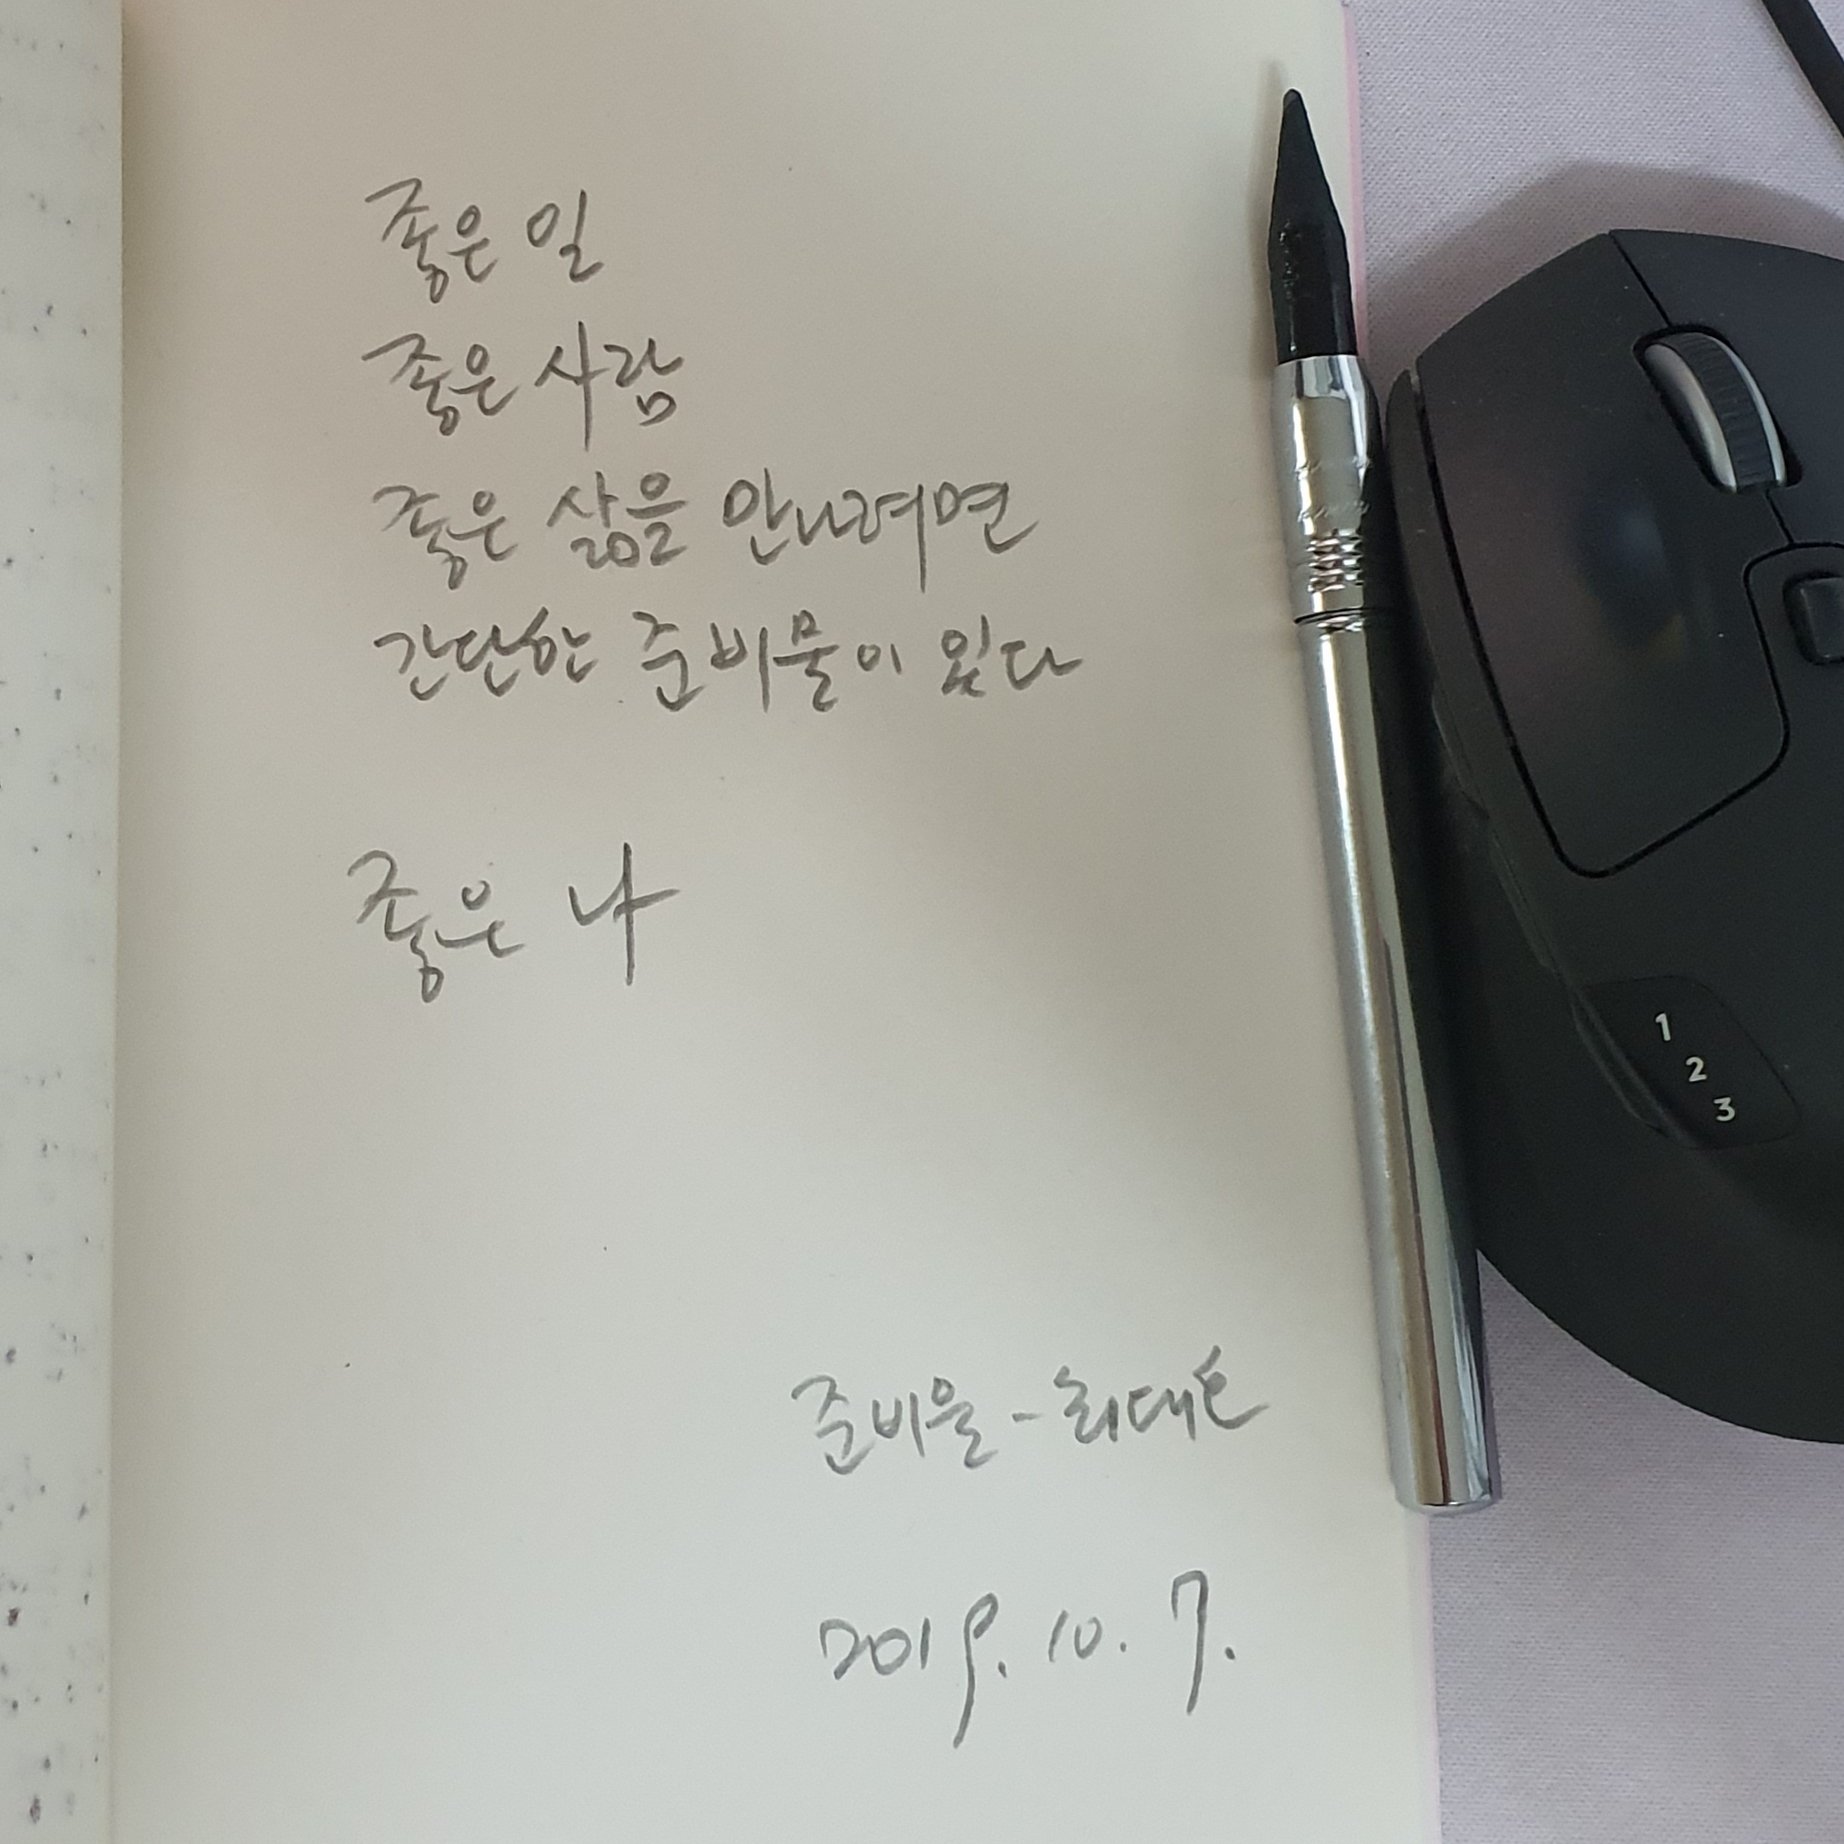 좋은 일
좋은 사람
좋은 삶을 만나려면
간단한 준비물이 있다
좋은 나
준비물 - 최대호
2019. 10. 7.
1
2
3